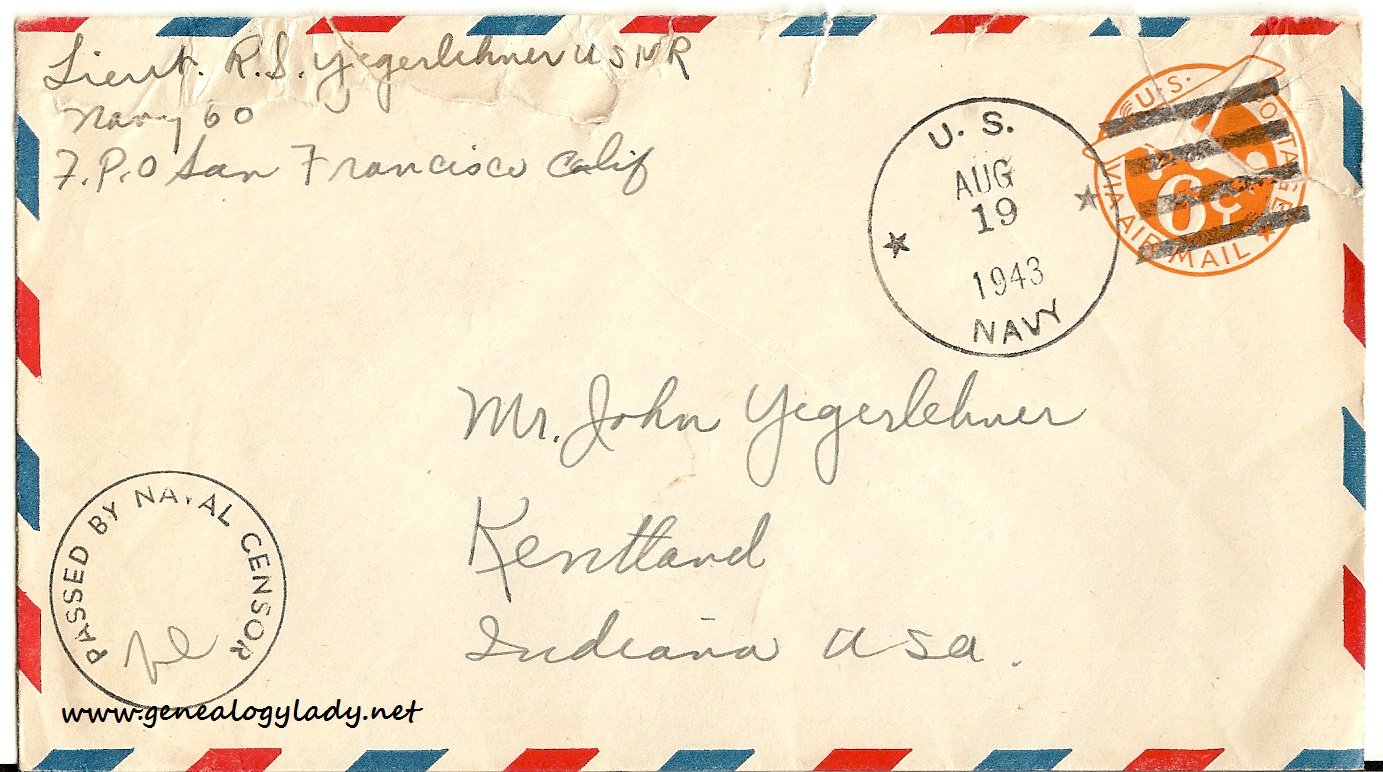 Lieut. R.S. Yegerlehner USNR
Navy 60
F.P.O San Francisco Calif
U.S. POSTAGE
6¢
VIA AIR MAIL
U. S.
AUG
19
1943
NAVY
Mr. John Yegerlehner
Kentland
Indiana USA.
PASSED BY NAVAL CENSOR
www.genealogylady.net